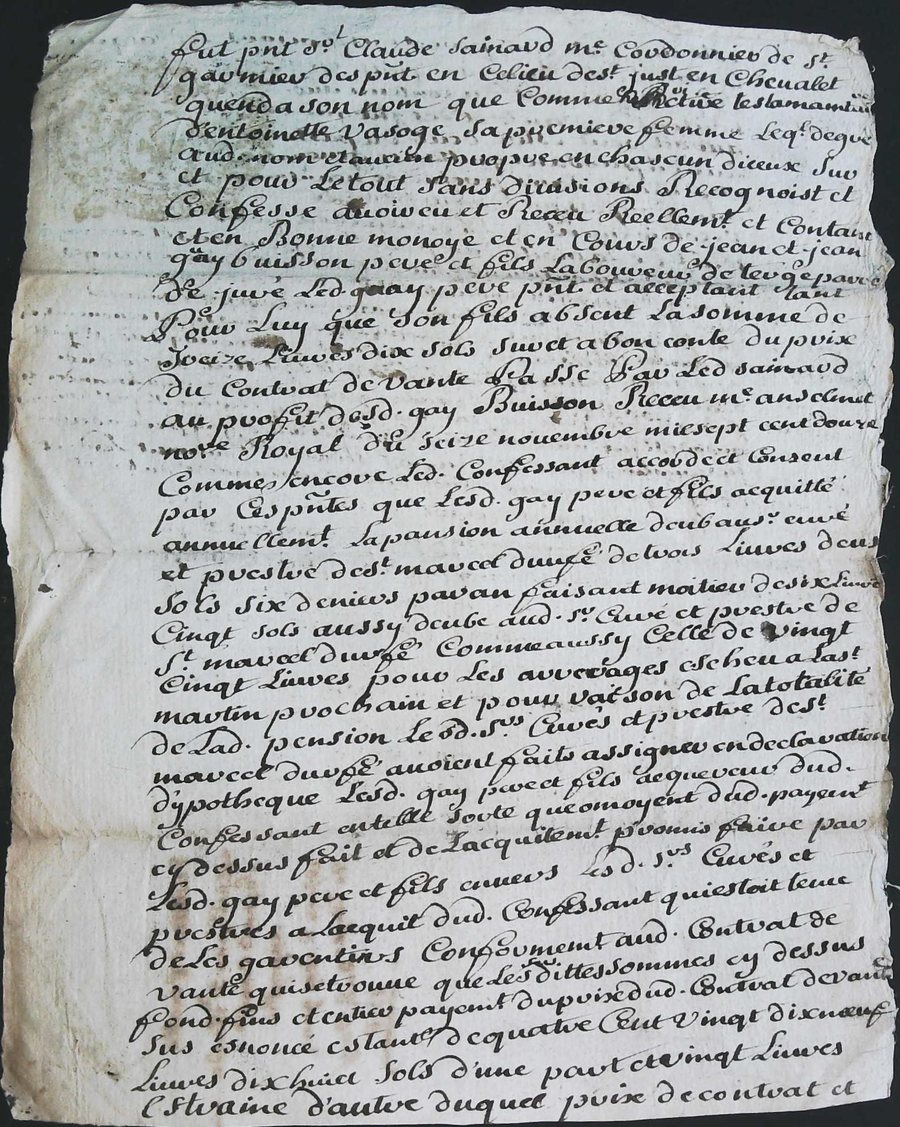 fut pnt Sr Claude Sainard me Cordonnier de st
garmier des pnt en Ce lieu de st just en Chevalet
quend a son nom que Comme testamant
d'entoinette Vasoge sa premiere femme leql de gré
aud. nom et au sien propre en chascun diceux sur
et pour Le tout Sans divisions Recognoist et
Confesse avoir eu et Receu Reellemt et Contant
et en Bonne monoye et en Cours de jean et jean
gay buisson pere et fils Laboureurs de paroé
de juré Led. gay pere pnt et acceptant tant
Pour Luy que son fils absent La somme de
treize Livres dix sols sur et a bon conte du prix
du Contrat de vante Passe Par Led sainard
au profit desd. gay Buisson Receu me anselmet
nore Royal du seize novembre mil sept cent douze
Comme encore Led. Confessant accorde et Consent
par Ces pntes que Lesd. gay pere et fils acquitte
annuellemt La pansion annuelle deub au sr curé
et prestre de st marcel durfé de trois Livres deus
sols six deniers par an faisant moitier de six Livre
Cinqt sols aussy deube aud. sr Curé et prestre de
st marcel durfé Comme aussy Celle de vingt
Cinqt Livres pour Les arrerages escheu a La st
martin prochain et pour raison de La totalité
de Lad. pension Lesd. srs Cures et prestre de st
marcel durfé avoient faits assigner en declaration
d'ypotheque Lesd. gay pere et fils acquereur dud.
Confessant en telle sorte que moyent dud. payemt
cy dessus fait et de Lacquitemt promis faire par
Lesd. gay pere et fils envers Lesd. srs Curés et
prestres a Lacquit dud. Confessant qui estoit tenu
de Les garentirs Conforment aud. Contrat de
vante qui se trouve que Les susdittes sommes cy dessus
fond. fins et entier payemt du prix dud. Contrat de vante
sus esnoncé estants de quatre Cent vingt dix neuf
Livres dix huict sols d'une part et vingt Livres
Estraine d'autre duquel prix de contrat et